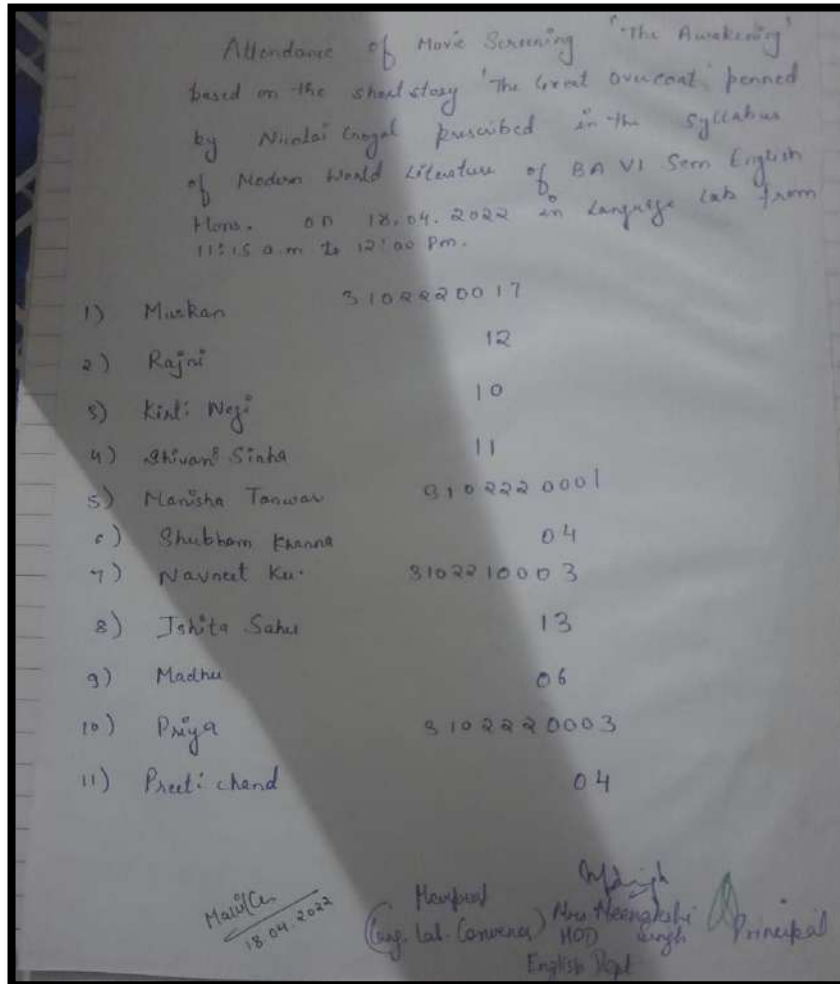 Attendance of Movie Screening "The Awakening"
based on the short story 'The Great Overcoat' penned
by Nicolai Gogal prescribed in the Syllabus
of Modern World Literature of BA VI Sem English
Hons. on 18.04.2022 in Language Lab from
11:15 a.m to 12:00 Pm.
1) Muskan 3102220017
2) Rajni 12
3) Kirti Negi 10
4) Shivani Sinha 11
5) Manisha Tanwar 3102220001
6) Shubham Khanna 04
7) Navneet Ku. 3102210003
8) Ishita Sahu 13
9) Madhu 06
10) Priya 3102220003
11) Preeti chand 04
18.04.2022
(Lang. Lab. Convener) Mrs Meenakshi Principal
HOD Singh
English Dept